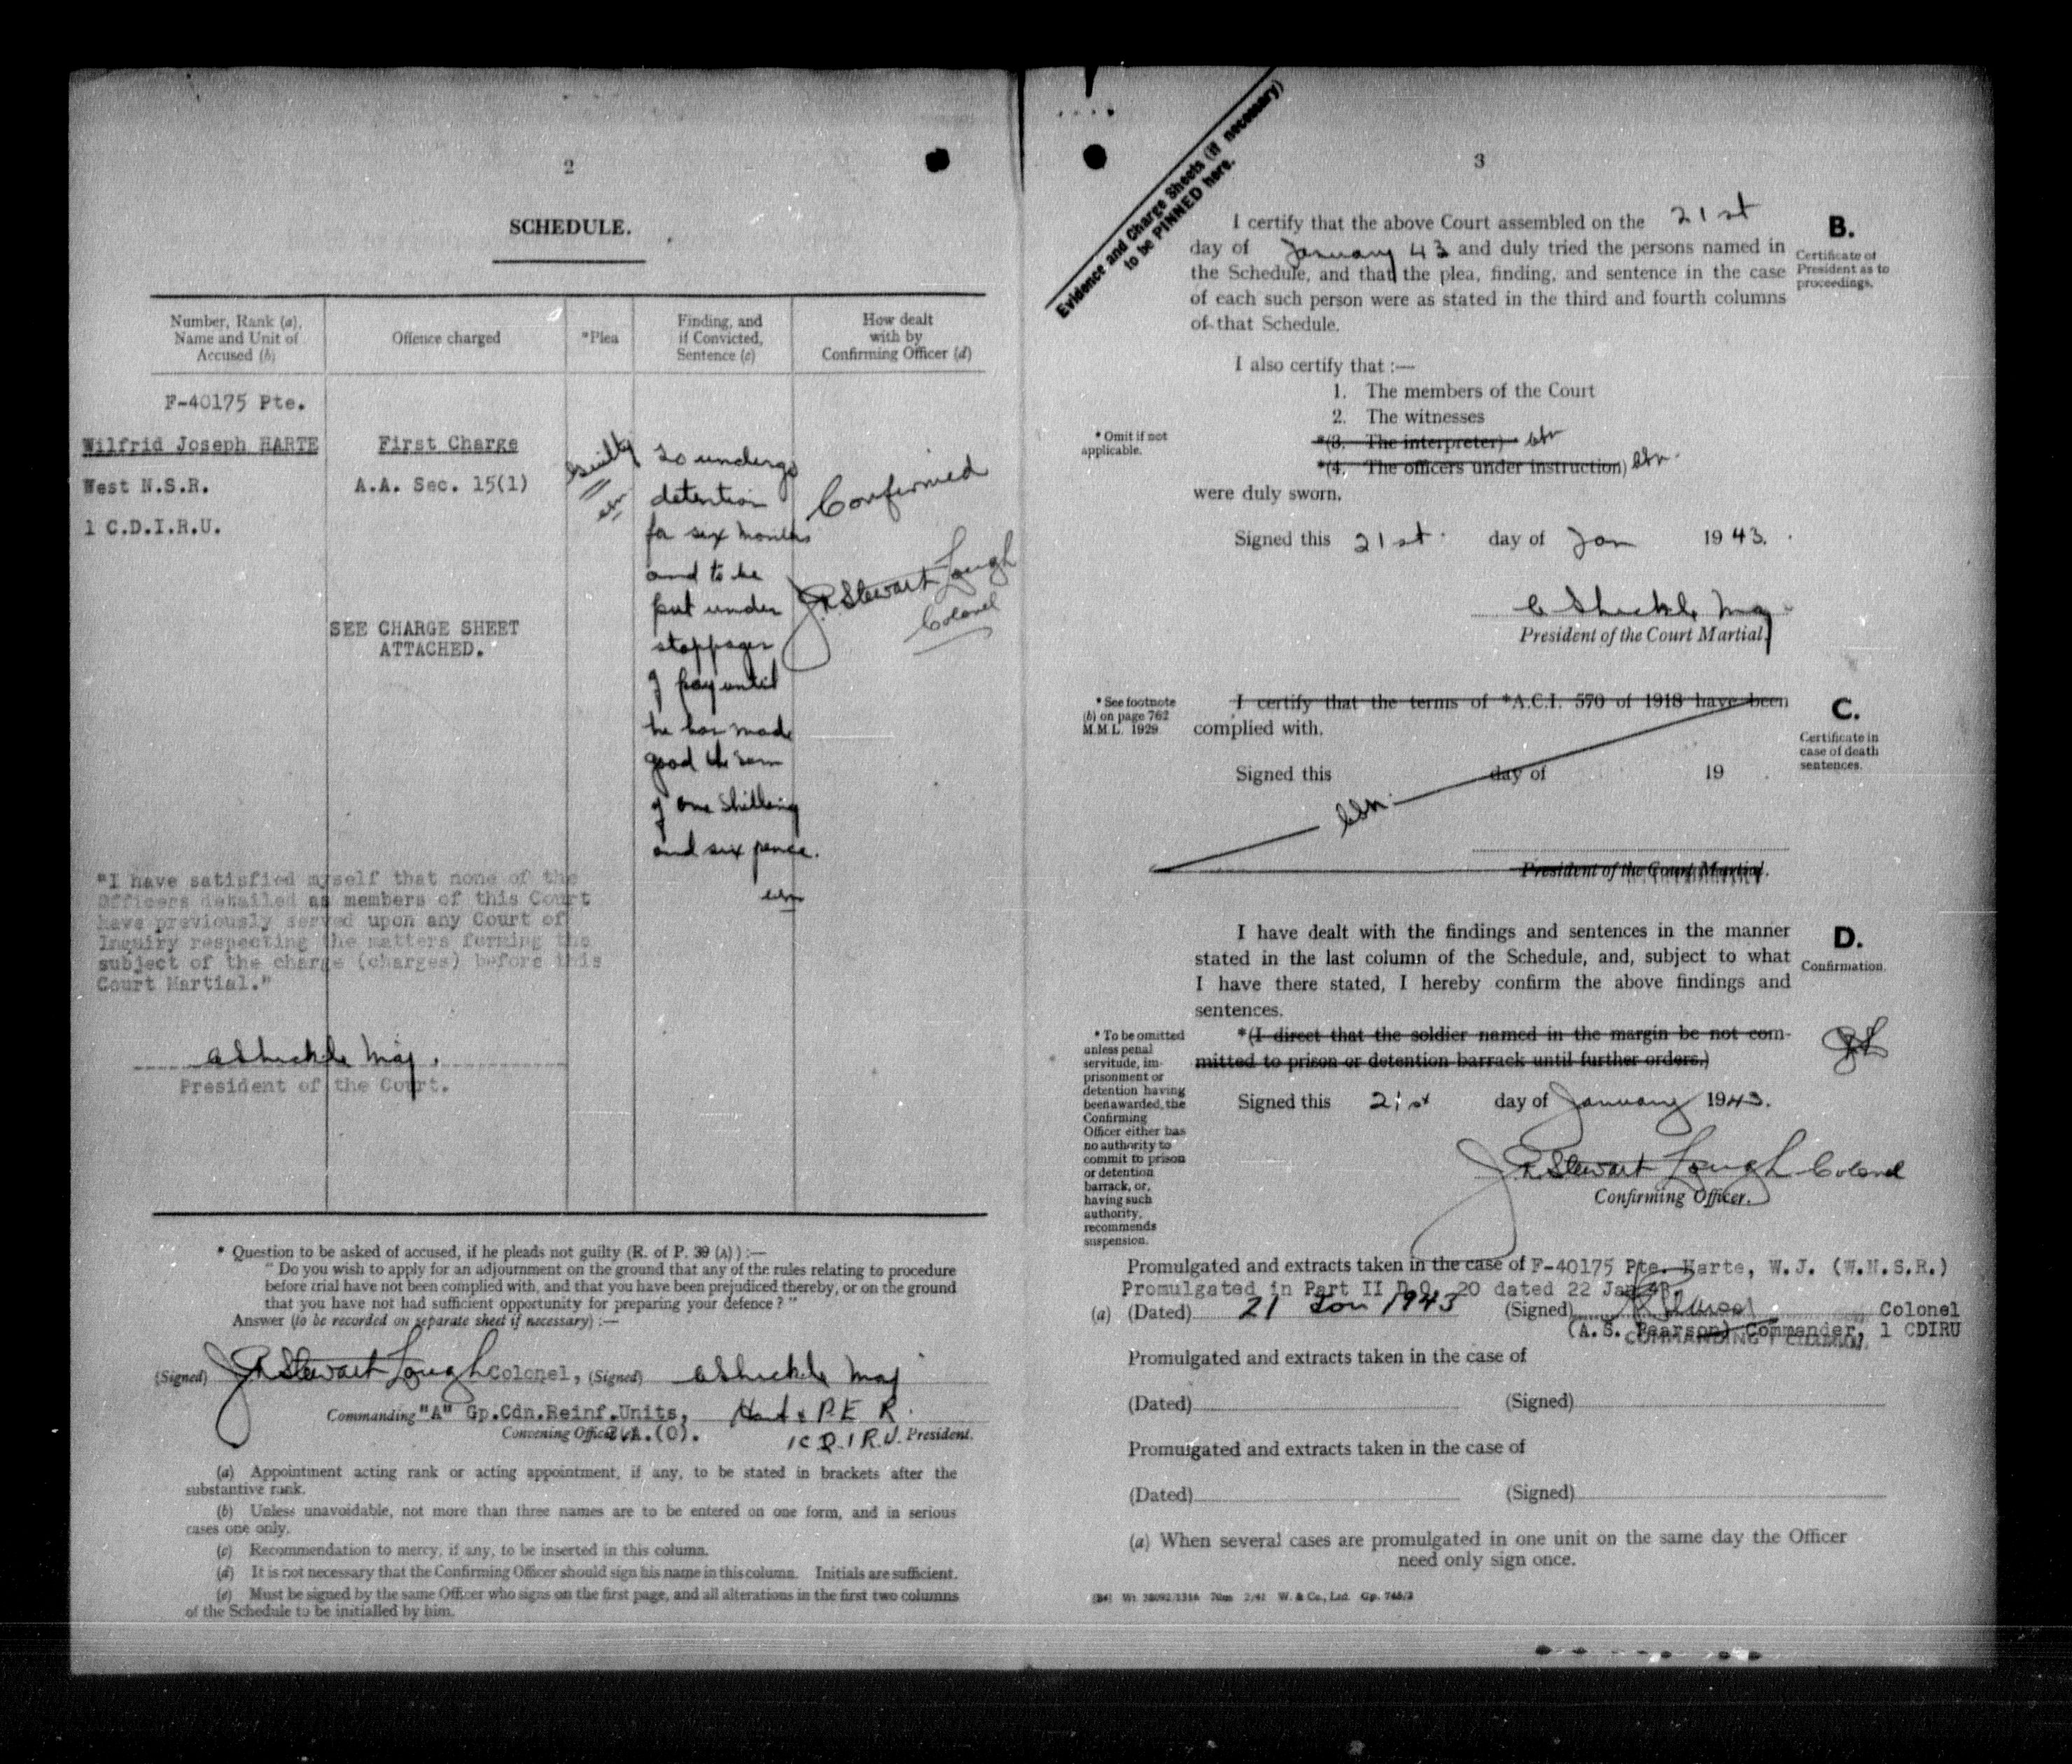 2
SCHEDULE.
Number, Rank (a), Name and Unit of Accused (b)
Offence charged
*Plea
Finding, and if Convicted, Sentence (c)
How dealt with by Confirming Officer (d)
F-40175 Pte.
Wilfrid Joseph HARTE
West N.S.R.
1 C.D.I.R.U.
First Charge
A.A. Sec. 15(1)
SEE CHARGE SHEET
ATTACHED.
Guilty
To undergo
detention
for six months
and to be
put under
stoppages
of pay until
he has made
good the sum
of one shilling
and six pence.
Confirmed
J. R. Stewart Lough
Colonel
"I have satisfied myself that none of the
Officers detailed as members of this Court
have previously served upon any Court of
Inquiry respecting the matters forming the
subject of the charge (charges) before this
Court Martial."
C Shuckle Maj.
President of the Court.
* Question to be asked of accused, if he pleads not guilty (R. of P. 39 (A)) :—
" Do you wish to apply for an adjournment on the ground that any of the rules relating to procedure
before trial have not been complied with, and that you have been prejudiced thereby, or on the ground
that you have not had sufficient opportunity for preparing your defence ? "
Answer (to be recorded on separate sheet if necessary) :—
(Signed) J. R. Stewart Lough Colonel, (Signed) C Shuckle Maj
Commanding "A" Gp.Cdn.Reinf.Units, Hast & P.E.R.
Convening Officer C.A.(O). 1 C.D.I.R.U. President.
(a) Appointment acting rank or acting appointment, if any, to be stated in brackets after the
substantive rank.
(b) Unless unavoidable, not more than three names are to be entered on one form, and in serious
cases one only.
(c) Recommendation to mercy, if any, to be inserted in this column.
(d) It is not necessary that the Confirming Officer should sign his name in this column. Initials are sufficient.
(e) Must be signed by the same Officer who signs on the first page, and all alterations in the first two columns
of the Schedule to be initialled by him.
3
Evidence and Charge Sheets (if necessary)
to be PINNED here.
I certify that the above Court assembled on the 21st
day of January 43 and duly tried the persons named in
the Schedule, and that the plea, finding, and sentence in the case
of each such person were as stated in the third and fourth columns
of that Schedule.
B.
Certificate of
President as to
proceedings.
I also certify that :—
1. The members of the Court
2. The witnesses
* Omit if not
applicable.
*(3. The interpreter)
*(4. The officers under instruction)
were duly sworn.
Signed this 21st day of Jan 1943.
C Shuckle Maj
President of the Court Martial.
* See footnote
(b) on page 762
M.M.L. 1929
I certify that the terms of *A.C.I. 570 of 1918 have been
complied with.
C.
Certificate in
case of death
sentences.
Signed this day of 19
President of the Court Martial.
I have dealt with the findings and sentences in the manner
stated in the last column of the Schedule, and, subject to what
I have there stated, I hereby confirm the above findings and
sentences.
D.
Confirmation.
* To be omitted
unless penal
servitude, im-
prisonment or
detention having
been awarded, the
Confirming
Officer either has
no authority to
commit to prison
or detention
barrack, or,
having such
authority,
recommends
suspension.
*(I direct that the soldier named in the margin be not com-
mitted to prison or detention barrack until further orders.)
Signed this 21st day of January 1943.
J. R. Stewart Lough Colonel
Confirming Officer.
Promulgated and extracts taken in the case of F-40175 Pte. Harte, W.J. (W.N.S.R.)
Promulgated in Part II D.O. 20 dated 22 Jan 43.
(a) (Dated) 21 Jan 1943 (Signed) Colonel
(A.S. Pearson) Commander, 1 CDIRU
Promulgated and extracts taken in the case of
(Dated) (Signed)
Promulgated and extracts taken in the case of
(Dated) (Signed)
(a) When several cases are promulgated in one unit on the same day the Officer
need only sign once.